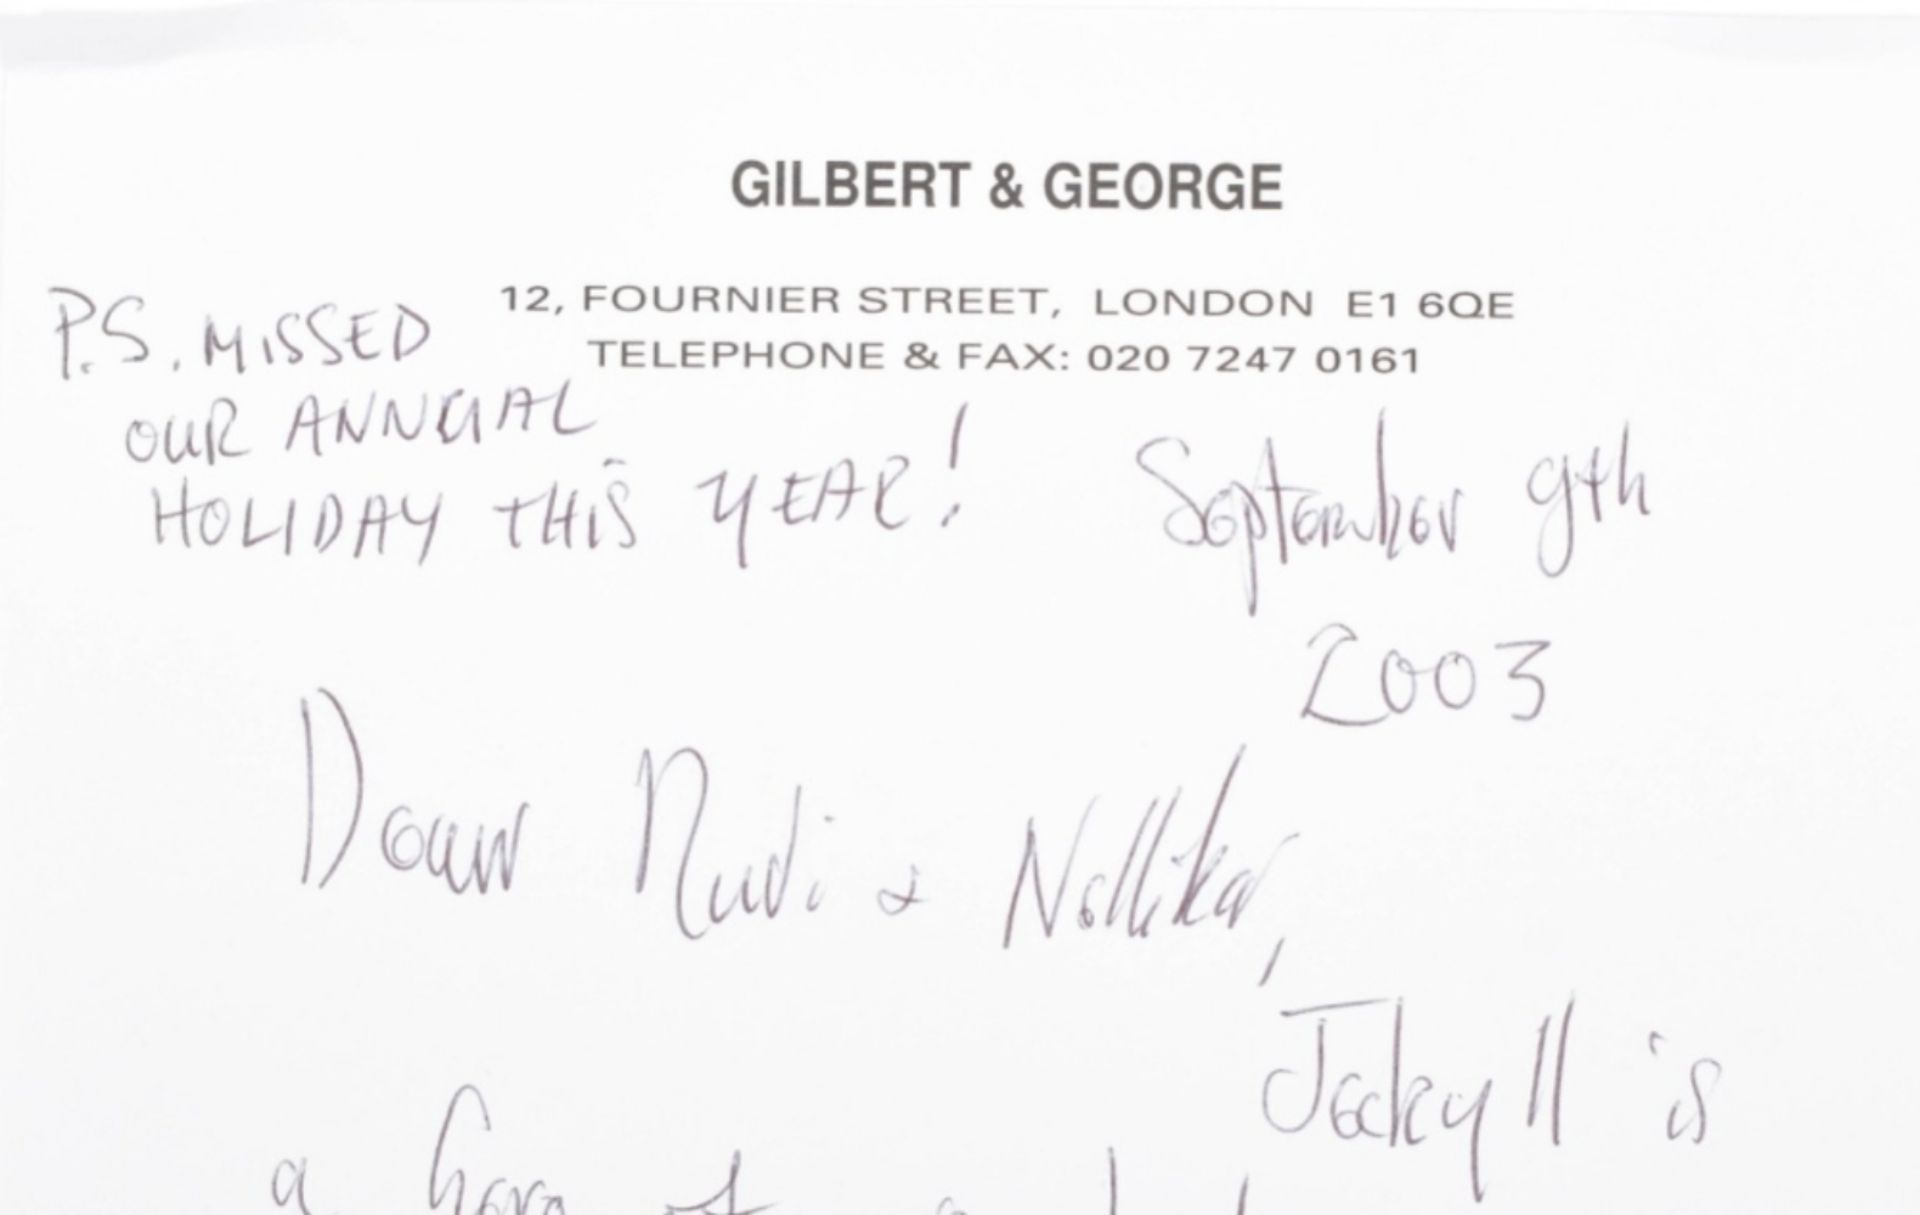 GILBERT & GEORGE
12, FOURNIER STREET, LONDON E1 6QE
TELEPHONE & FAX: 020 7247 0161
P.S. MISSED
OUR ANNUAL
HOLIDAY THIS YEAR!
September 9th
2003
Dear Rudi &
Jeckyll is
a hero